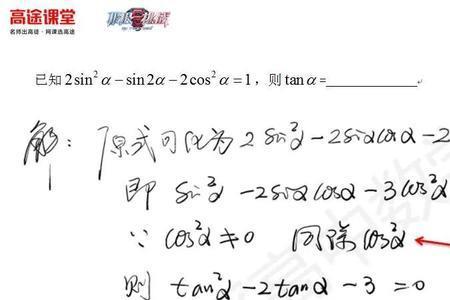 高途课堂
名师出高途·网课选高途
已知 2sin²α − sin2α − 2cos²α = 1，则 tanα =________
解：原式可化为 2sin²α − 2sinαcosα − 2
即 sin²α − 2sinαcosα − 3cos²α
∵ cos²α ≠ 0 同除 cos²α
则 tan²α − 2tanα − 3 = 0